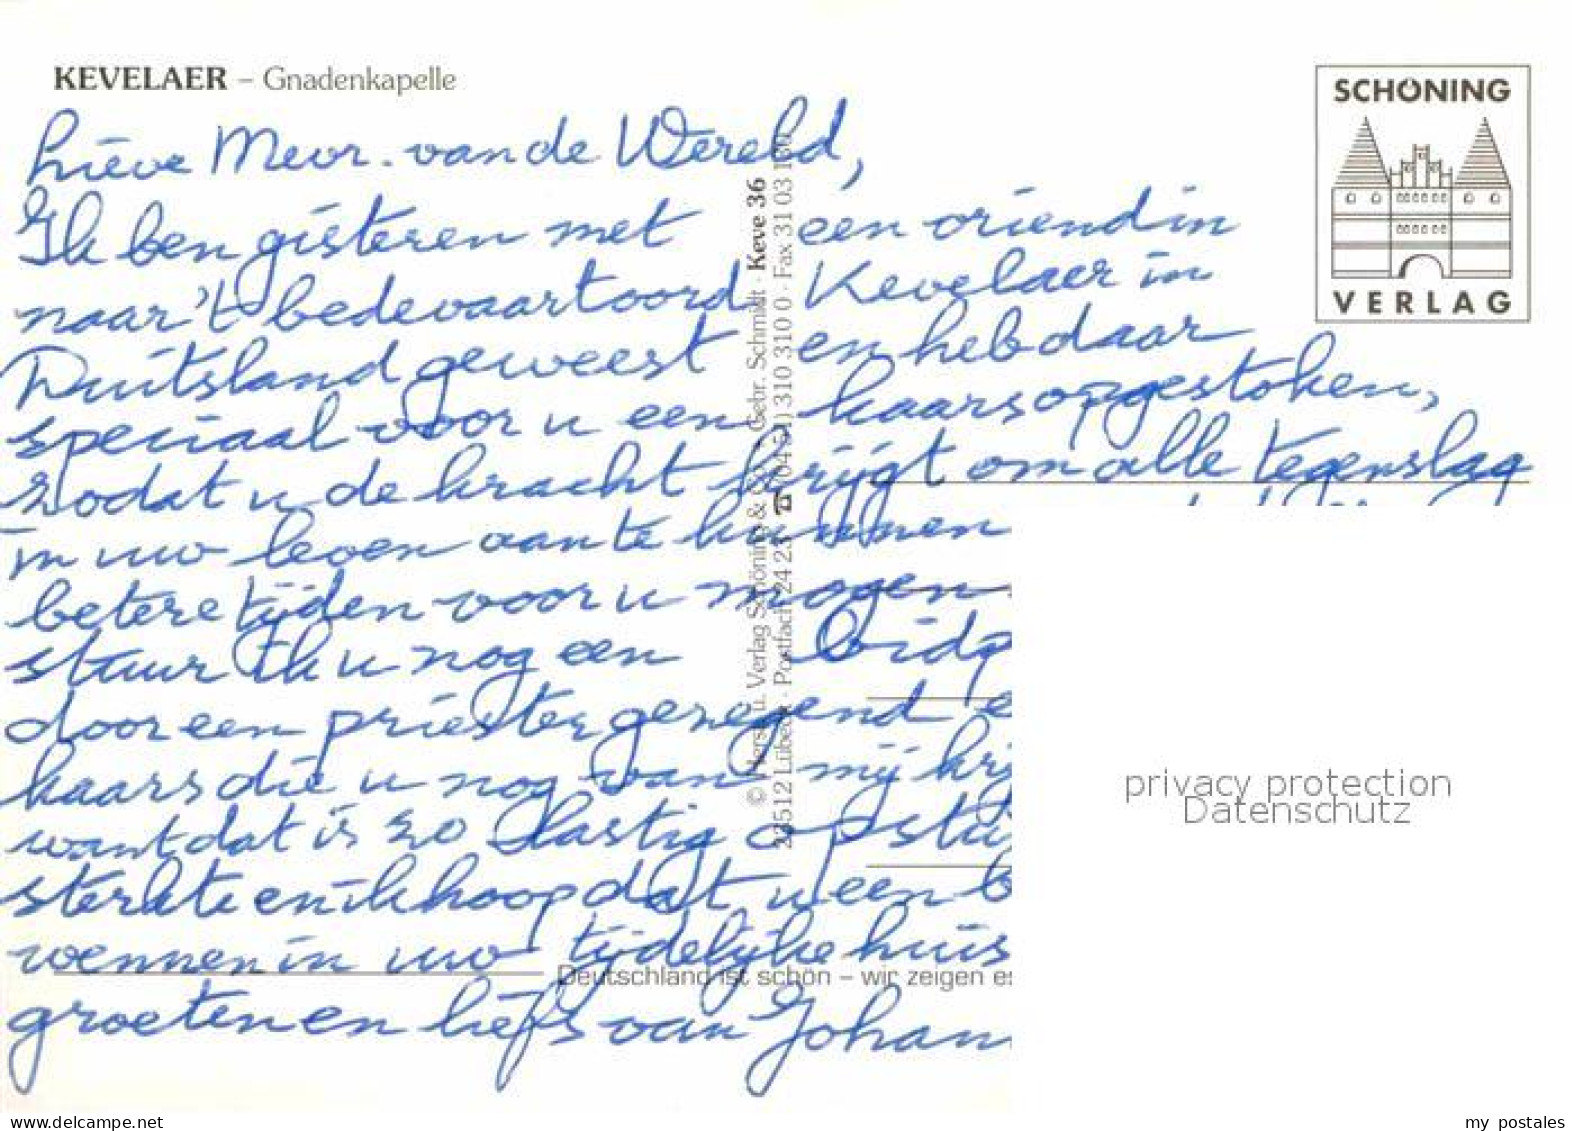 KEVELAER – Gnadenkapelle
SCHÖNING
VERLAG
Lieve Mevr. van de Wereld,
Ik ben gisteren met een vriendin
naar 't bedevaartoord Kevelaer in
Duitsland geweest en heb daar
speciaal voor u een kaars opgestoken,
zodat u de kracht krijgt om alle tegenslag
in uw leven aan te kunnen
betere tijden voor u mogen
stuur ik u nog een bidp
door een priester gezegend e
kaars die u nog van mij kri
want dat is zo lastig opstu
sterkte en ik hoop dat u een b
wennen in uw tijdelijke huis
groeten en liefs van Johan
© Herst. u. Verlag Schöning & Co + Gebr. Schmidt · Keve 36
23512 Lübeck · Postfach 24 23 · ☎ (04 51) 310 310 0 · Fax 31 03 130
Deutschland ist schön – wir zeigen es
privacy protection
Datenschutz
my postales